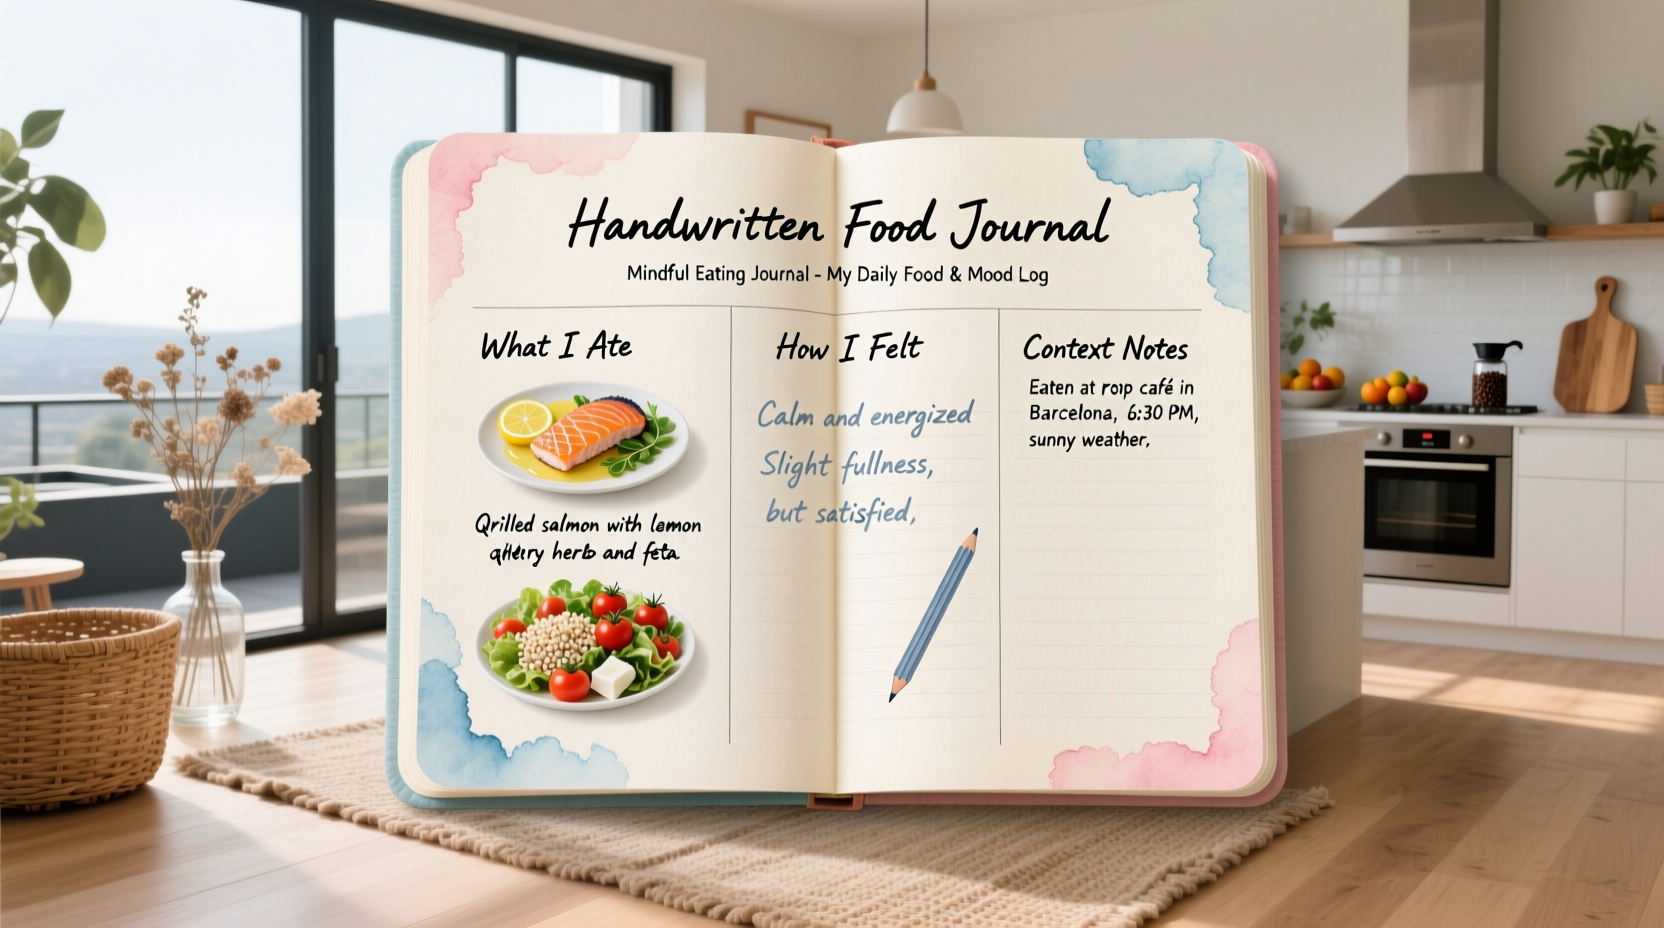 Handwritten Food Journal
Mindful Eating Journal - My Daily Food & Mood Log
What I Ate
Qrilled salmon with lemon
herb and feta
How I Felt
Calm and energized
Slight fullness,
but satisfied,
Context Notes
Eaten at café in
Barcelona, 6:30 PM,
sunny weather,